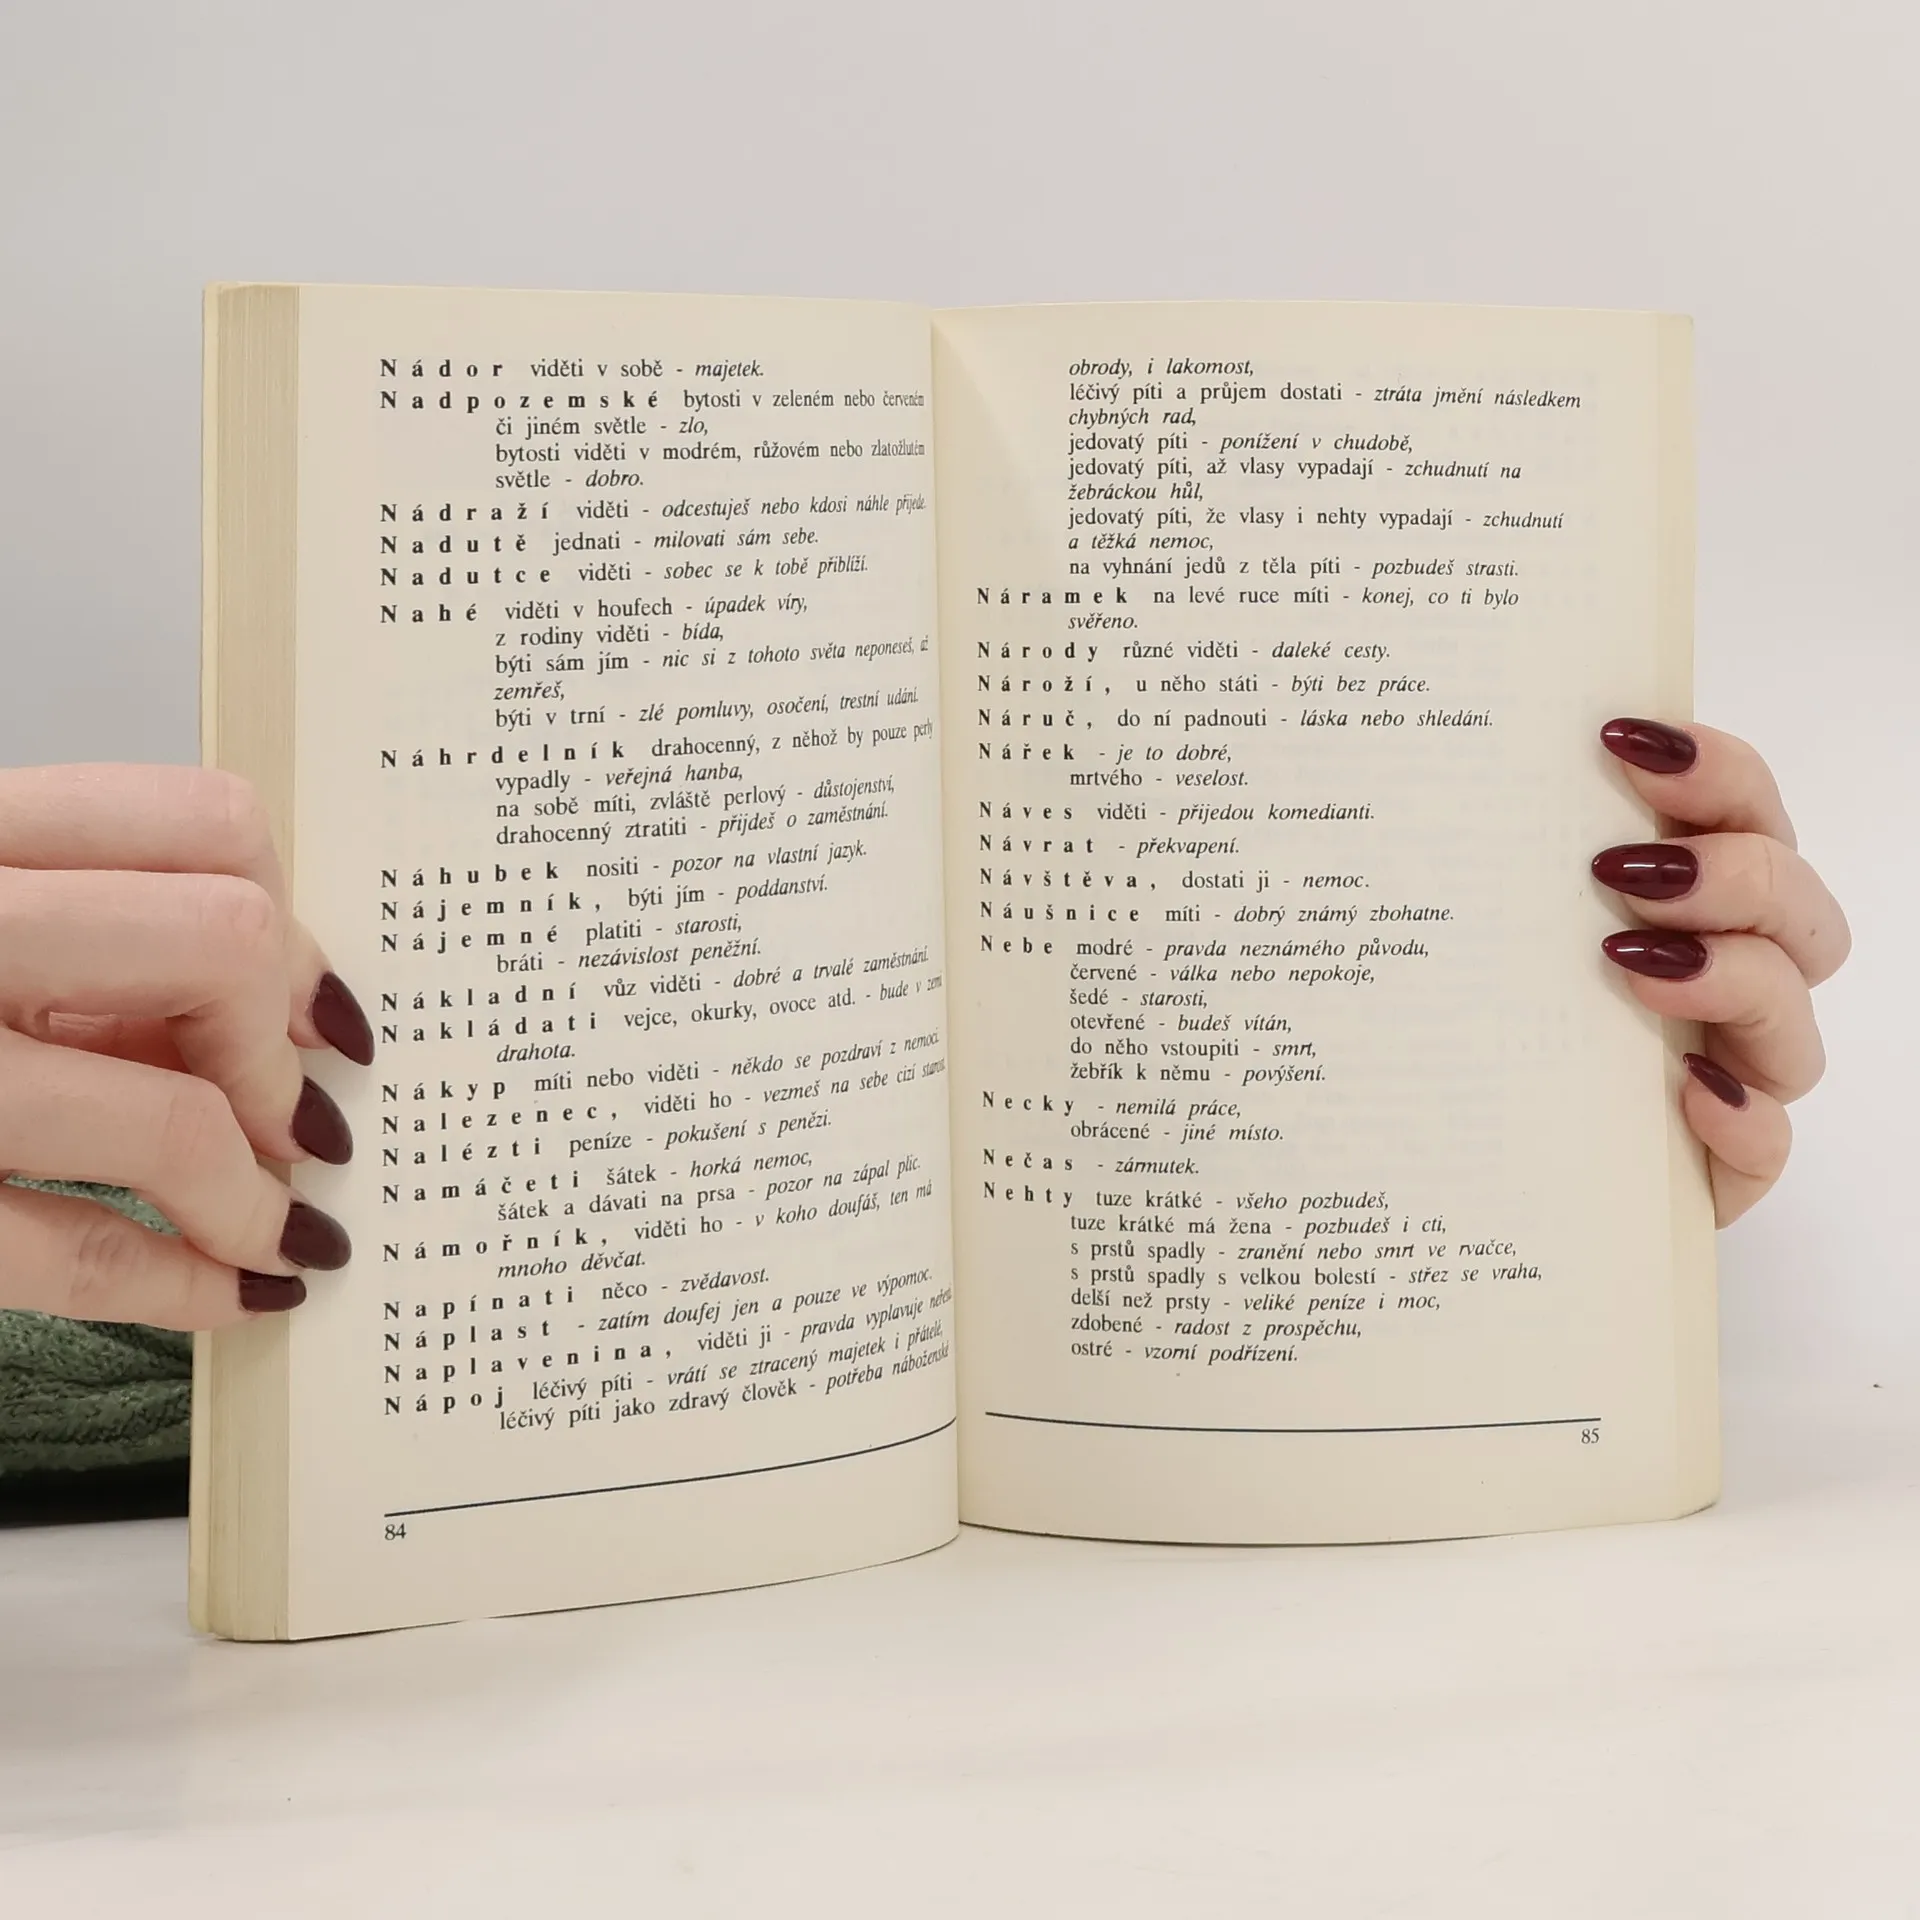 Nádor viděti v sobě - majetek.
Nadpozemské bytosti v zeleném nebo červeném
či jiném světle - zlo,
bytosti viděti v modrém, růžovém nebo zlatožlutém
světle - dobro.
Nádraží viděti - odcestuješ nebo kdosi náhle přijede.
Nadutě jednati - milovati sám sebe.
Nadutce viděti - sobec se k tobě přiblíží.
Nahé viděti v houfech - úpadek víry,
z rodiny viděti - bída,
býti sám jím - nic si z tohoto světa neponeseš, až
zemřeš,
býti v trní - zlé pomluvy, osočení, trestní udání.
Náhrdelník drahocenný, z něhož by pouze perly
vypadly - veřejná hanba,
na sobě míti, zvláště perlový - důstojenství,
drahocenný ztratiti - přijdeš o zaměstnání.
Náhubek nositi - pozor na vlastní jazyk.
Nájemník, býti jím - poddanství.
Nájemné platiti - starosti,
bráti - nezávislost peněžní.
Nákladní vůz viděti - dobré a trvalé zaměstnání.
Nakládati vejce, okurky, ovoce atd. - bude v zemi
drahota.
Nákyp míti nebo viděti - někdo se pozdraví z nemoci.
Nalezenec, viděti ho - vezmeš na sebe cizí starost.
Nalézti peníze - pokušení s penězi.
Namáčeti šátek - horká nemoc,
šátek a dávati na prsa - pozor na zápal plic.
Námořník, viděti ho - v koho doufáš, ten má
mnoho děvčat.
Napínati něco - zvědavost.
Náplast - zatím doufej jen a pouze ve výpomoc.
Naplavenina, viděti ji - pravda vyplavuje neřest.
Nápoj léčivý píti - vrátí se ztracený majetek i přátelé,
léčivý píti jako zdravý člověk - potřeba náboženské
84
obrody, i lakomost,
léčivý píti a průjem dostati - ztráta jmění následkem
chybných rad,
jedovatý píti - ponížení v chudobě,
jedovatý píti, až vlasy vypadají - zchudnutí na
žebráckou hůl,
jedovatý píti, že vlasy i nehty vypadají - zchudnutí
a těžká nemoc,
na vyhnání jedů z těla píti - pozbudeš strasti.
Náramek na levé ruce míti - konej, co ti bylo
svěřeno.
Národy různé viděti - daleké cesty.
Nároží, u něho státi - býti bez práce.
Náruč, do ní padnouti - láska nebo shledání.
Nářek - je to dobré,
mrtvého - veselost.
Náves viděti - přijedou komedianti.
Návrat - překvapení.
Návštěva, dostati ji - nemoc.
Náušnice míti - dobrý známý zbohatne.
Nebe modré - pravda neznámého původu,
červené - válka nebo nepokoje,
šedé - starosti,
otevřené - budeš vítán,
do něho vstoupiti - smrt,
žebřík k němu - povýšení.
Necky - nemilá práce,
obrácené - jiné místo.
Nečas - zármutek.
Nehty tuze krátké - všeho pozbudeš,
tuze krátké má žena - pozbudeš i cti,
s prstů spadly - zranění nebo smrt ve rvačce,
s prstů spadly s velkou bolestí - střez se vraha,
delší než prsty - veliké peníze i moc,
zdobené - radost z prospěchu,
ostré - vzorní podřízení.
85